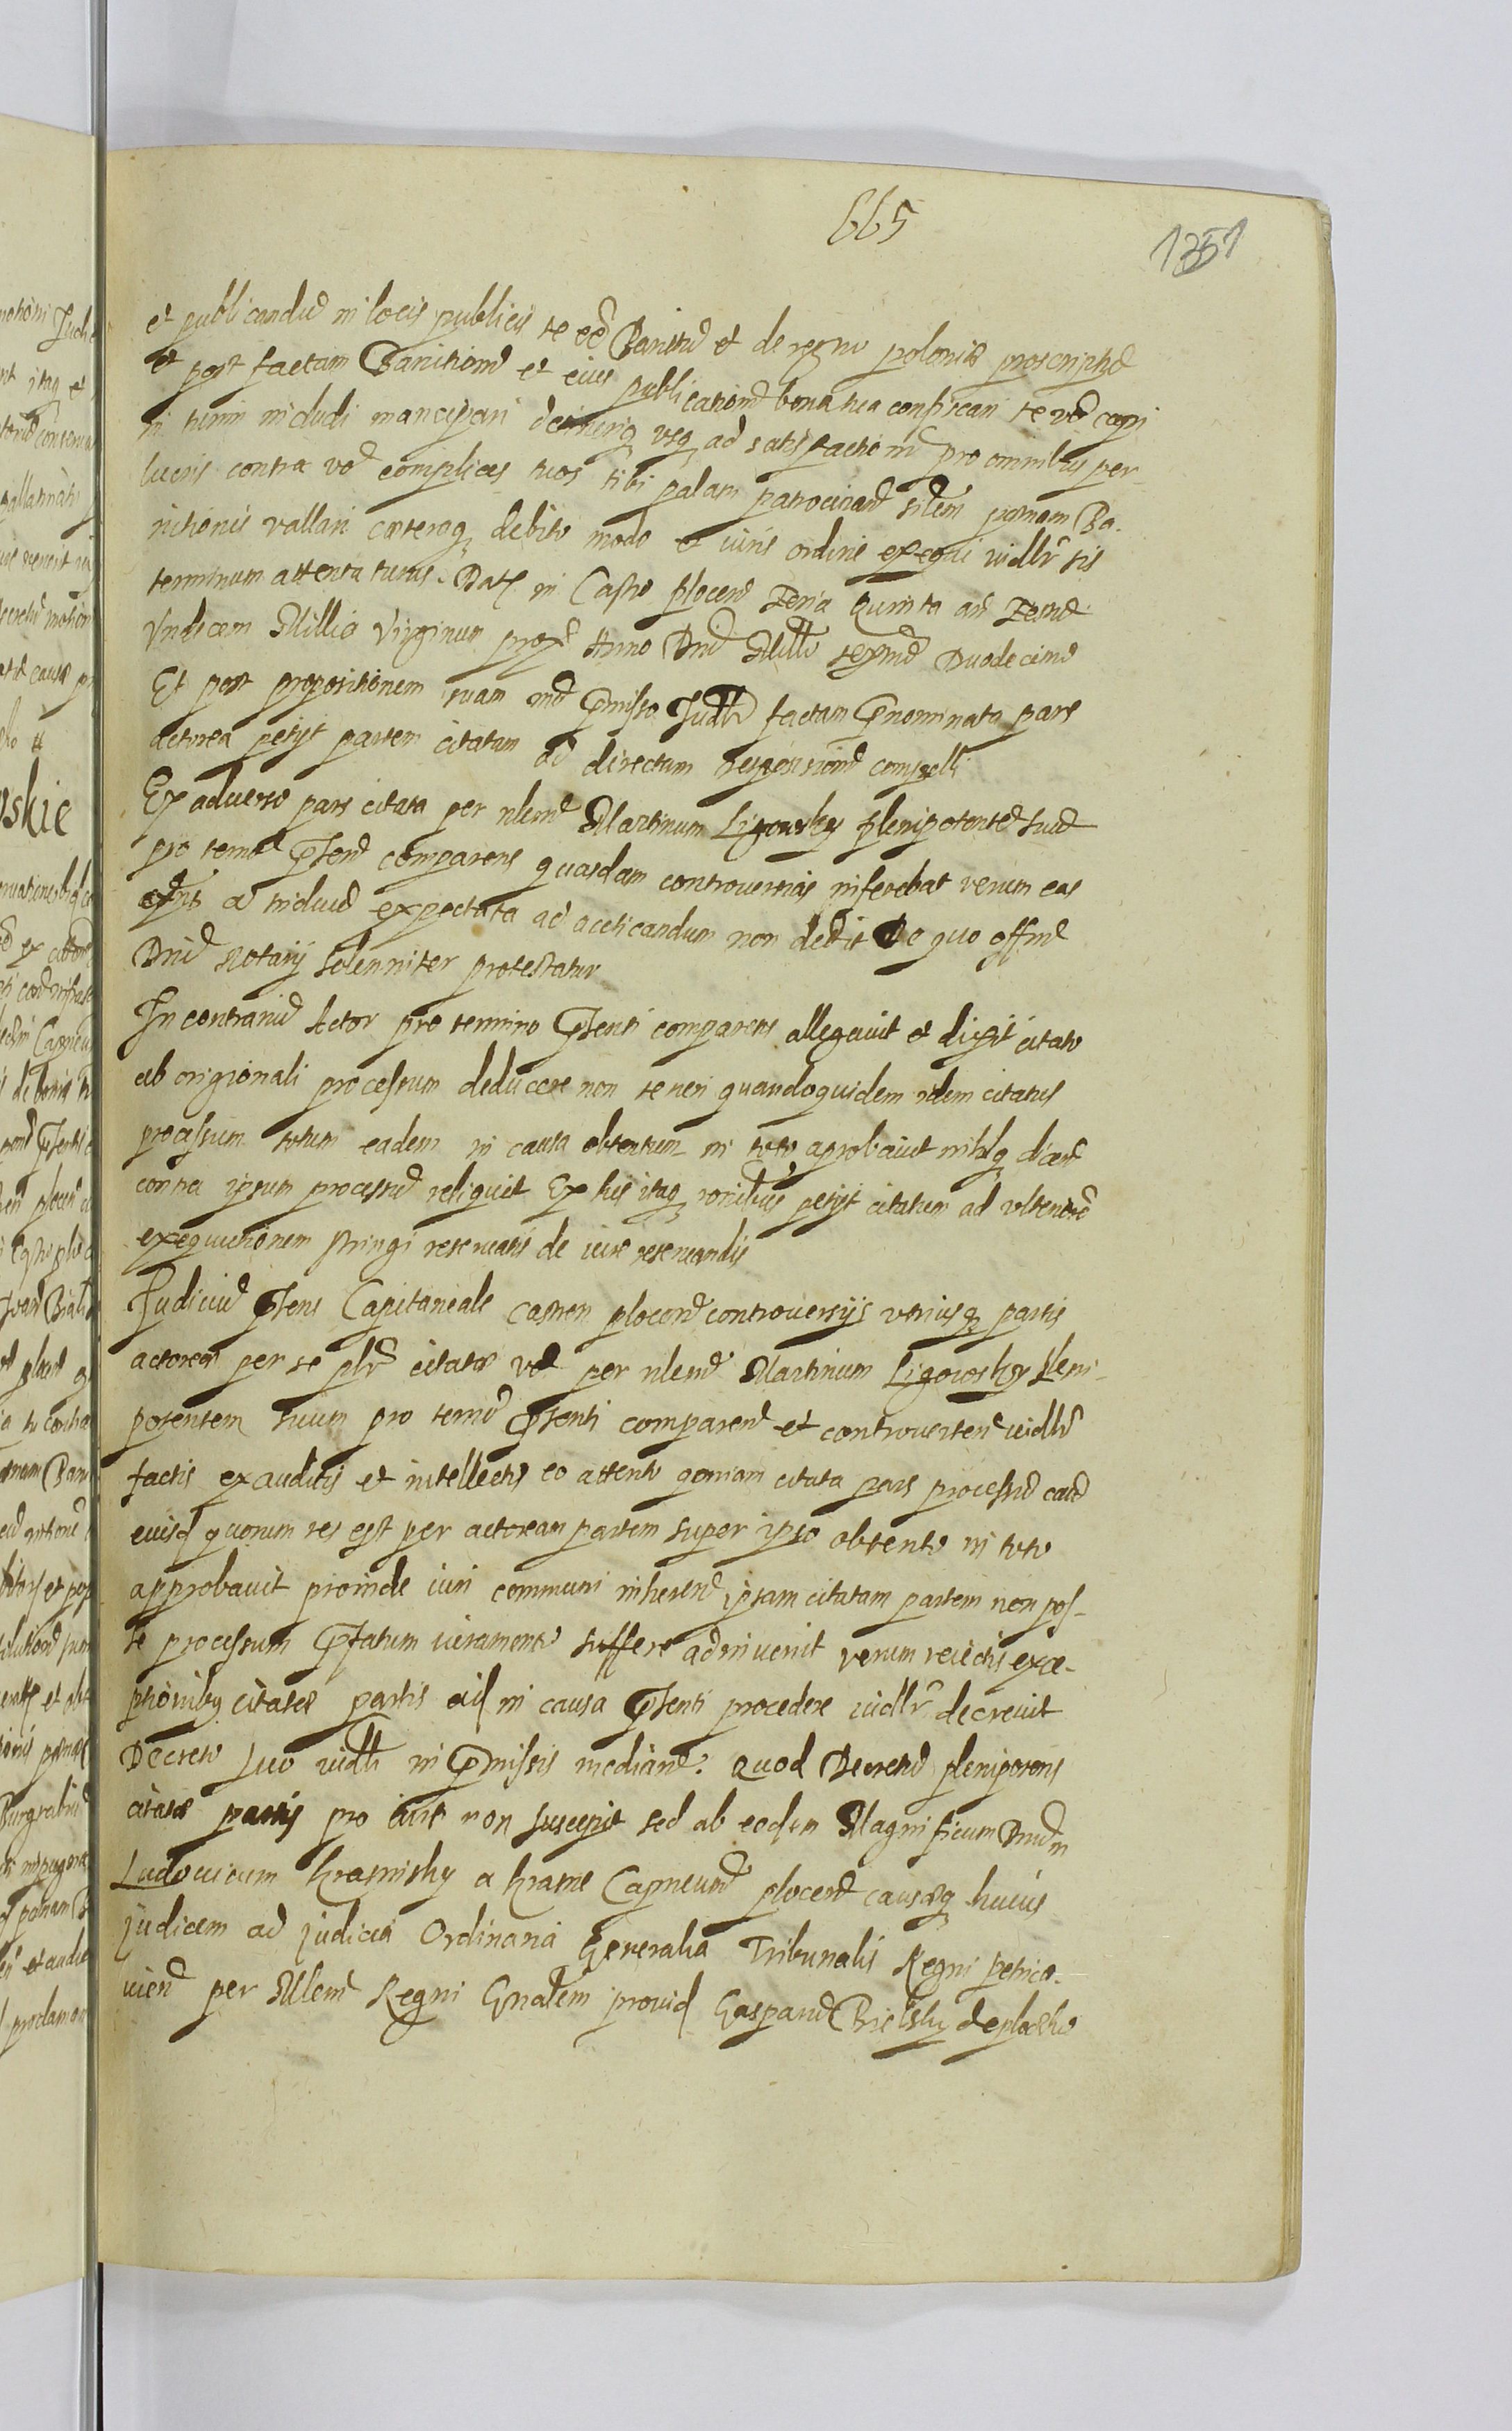 665
1351
et publicandū in locis publicis te eē Banitū et de regno poloniæ proscriptū
et post factam Banitionē et eius publicationē bona tua confiscari te vō capi
in turrim includi mancipari detinerīq usq ad satisfactionē pro omnibus per
lucris contra vō complices tuos tibi palam patrocinand silem pœnam Ba-
nitionis vallari cæteraq debito modo et iuris ordine exequi iudlr sis
terminum attentaturus. Dat in Castro plocen Feria Quinta añ Festū
Undecem Millia Virginum prox Anno Dni Millo sexmo Duodecimo
Et post propositionem suam mō pmisso Judlr factam pnominata pars
actorea petyt partem citatam ad directam responsionē compelli
Ex adverso pars citata per nlem Martinum Ligowsky plenipotentē suū
pro termō pſenti comparens quasdam controversias inferebat verum eas
ad triduū expectata ad acticandum non dedit De quo offm
Dni Notarij solenniter protestatur
In contrariū Actor pro termino pſenti comparens allegavit et dixit citato
ab originali processum deducere non teneri quandoquidem idem citatus
processum totum eadem in causa obtentum in toto aprobavit nihilq dicens
contra ipsum processū reliquit Ex his itaq ronibus petyt citatum ad ulteriorē
exequutionem stringi reservatis de iure reservandis
Judiciū pſens Capitaneale castren plocen controversijs utriusq partis
actoreæ per se plr citatæ vō per nlem Martinum Ligowsky pleni-
potentem suum pro termō pſenti comparen et controverten iudlr
factis exauditis et intellectis eo attento qoniam citata pars processū caus
euisd quorum res est per actoream partem super ipso obtento in toto
approbavit proinde iuri communi inheren ipsam citatam partem non pos-
se processum pſatum iuramento suffere adinvenit verum reiectis exce-
ptionibus citatæ partis eid in causa pſenti procedere iudlr decrevit
Decreto suo iudlr in pmissis median. Quod Decretū plenipotens
citatæ partis pro iure non suscepit sed ab eodem Magnificum Dnum
Ludovicum Krasinsky a Krasne Capneum plocen causæq huius
judicem ad judicia Ordinaria Generalia Tribunalis Regni petrico-
vien per Mlem Regni Gnalem provid Gasparū Bielsky de plocko